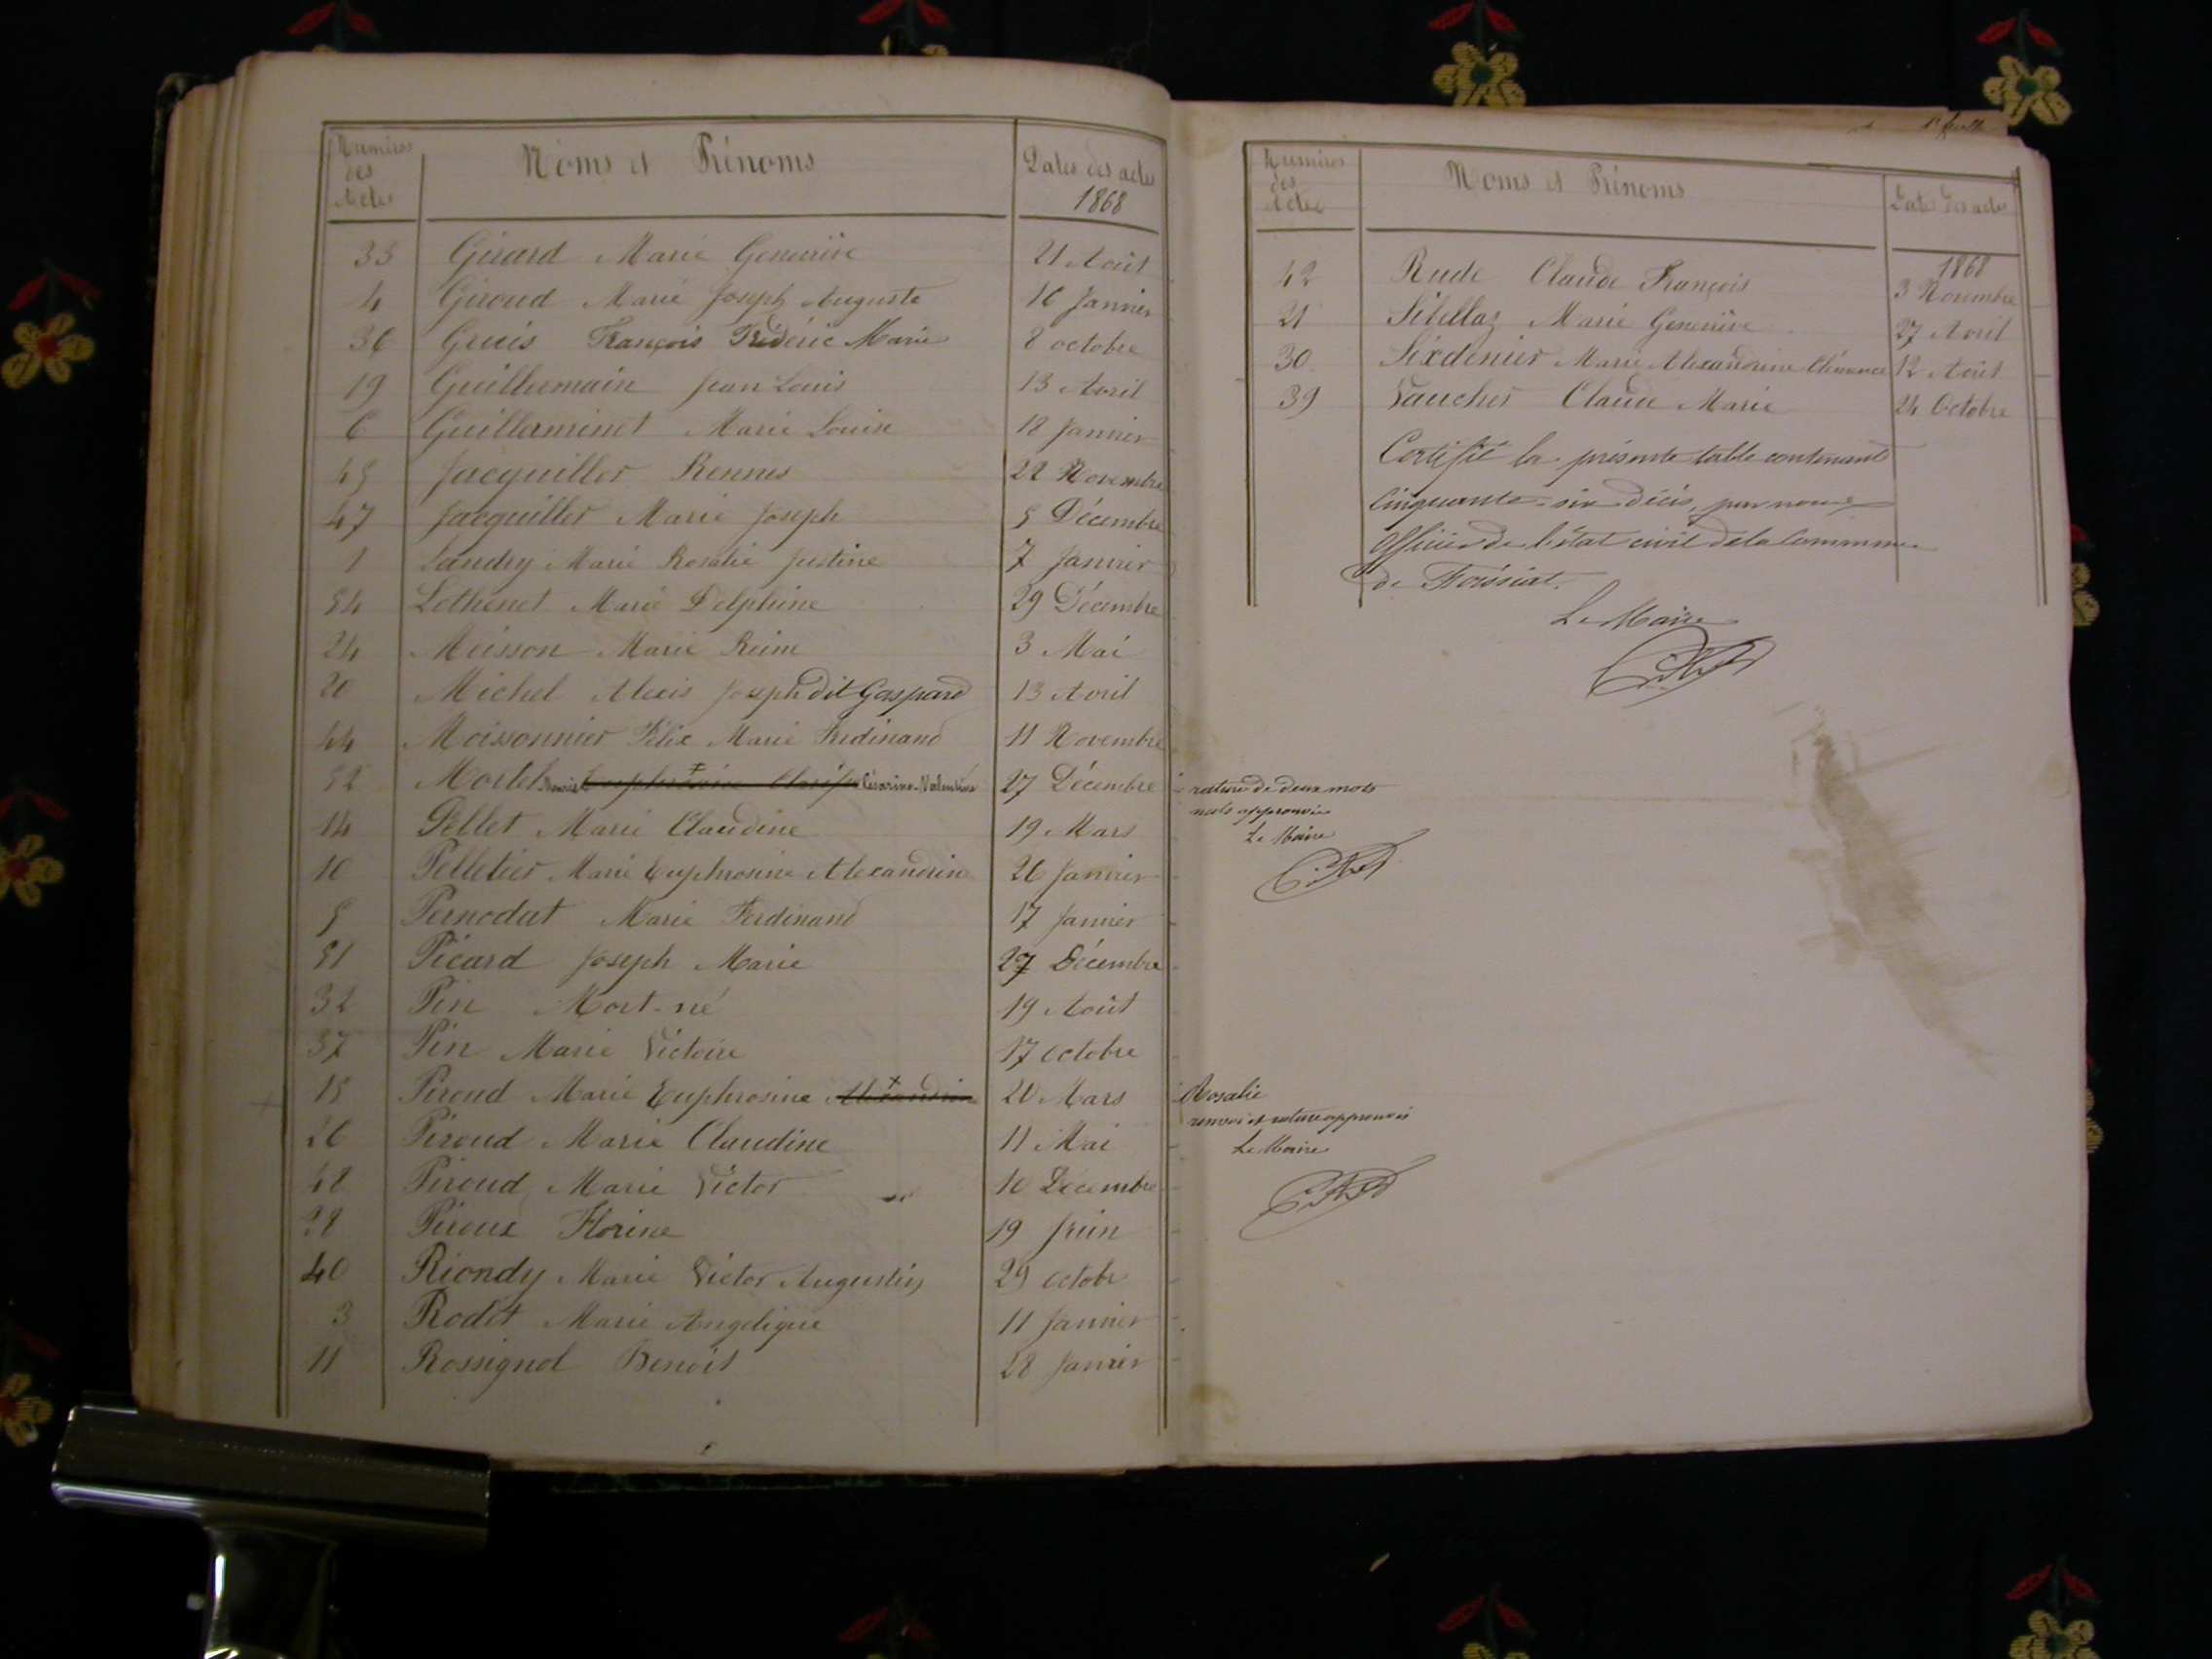 Numéros des Actes Noms et Prénoms Dates des actes 1868
33 Girard Marie Geneviève 21 Août
4 Giroud Marie Joseph Auguste 16 Janvier
36 François Frédéric Marie 8 octobre
19 Guillermain Jean Louis 13 Avril
6 Guillerminet Marie Louise 18 Janvier
45 Jacquiller 22 Novembre
47 Jacquiller Marie Joseph 5 Décembre
1 Landry Marie Rosalie Justine 7 Janvier
54 Lothenet Marie Delphine 29 Décembre
24 Moisson Marie Reine 3 Mai
20 Michel Alexis Joseph dit Gaspard 13 Avril
44 Moissonnier Félix Marie Ferdinand 11 Novembre
52 Mortel Césarine Valentine 27 Décembre
14 Pellet Marie Claudine 19 Mars
10 Pelletier Marie Euphrosine Alexandrine 26 Janvier
5 Pernodat Marie Ferdinand 17 Janvier
51 Picard Joseph Marie 27 Décembre
32 Pin Mort-né 19 Août
37 Pin Marie Victoire 17 octobre
15 Piroud Marie Euphrosine Alexandrine 20 Mars
26 Piroud Marie Claudine 11 Mai
48 Piroud Marie Victor 10 Décembre
28 Piroux Florine 19 Juin
40 Riondy Marie Victor Augustin 29 octobr
3 Rodet Marie Angelique 11 Janvier
11 Rossignol Benoît 28 Janvier
Numéros des Actes Noms et Prénoms Dates des actes
1868
42 Rude Claude François 3 Novembre
21 Marie Geneviève 27 Avril
30 Sixdenier Marie Alexandrine Clémence 12 Août
39 Vaucher Claude Marie 24 Octobre
Certifié la présente table contenant
Cinquante-six décès, par nous
Officier de l'état civil de la Commune
de Foissiat.
Le Maire
rature de deux mots
nuls approuvée
Le Maire
Rosalie
renvoi et rature approuvés
Le Maire